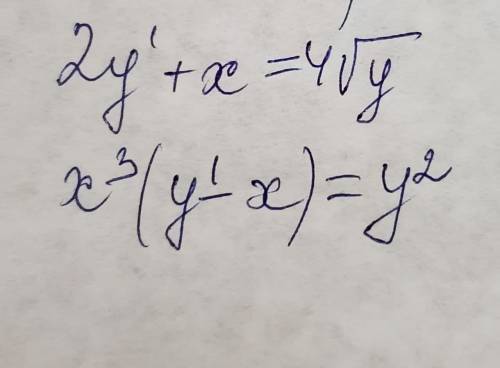 2y' + x = 4√y
x³(y' - x) = y²